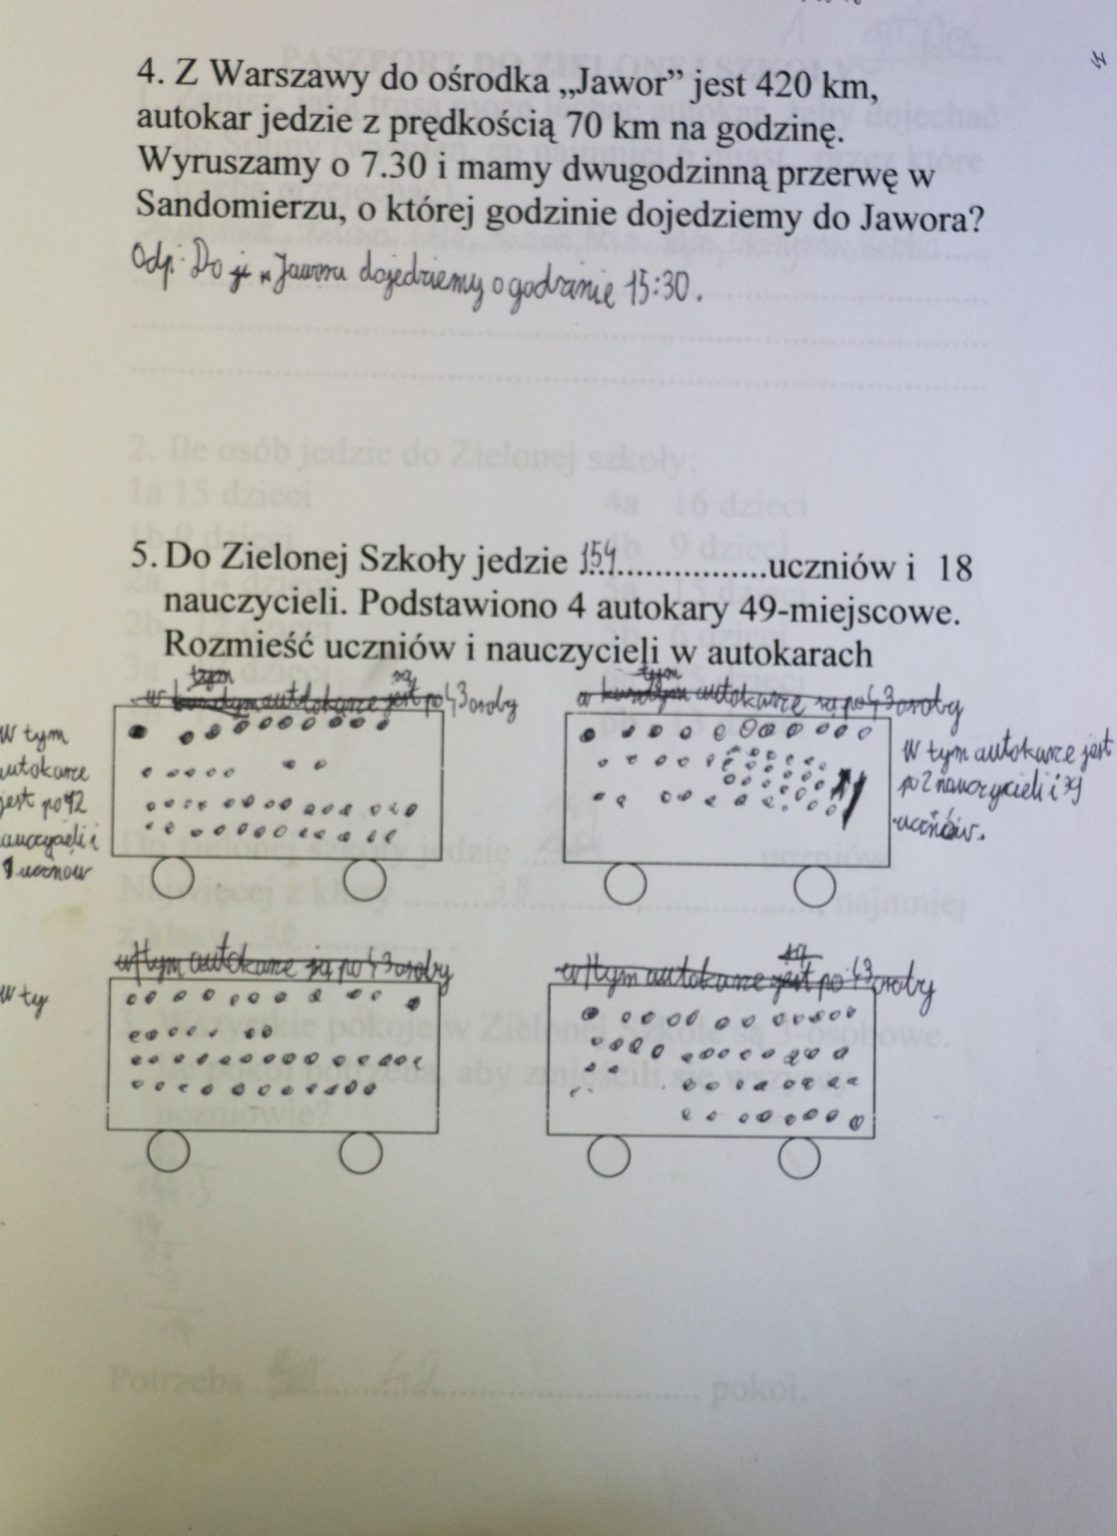 4. Z Warszawy do ośrodka „Jawor” jest 420 km,
autokar jedzie z prędkością 70 km na godzinę.
Wyruszamy o 7.30 i mamy dwugodzinną przerwę w
Sandomierzu, o której godzinie dojedziemy do Jawora?
Odp: Do Jawora dojedziemy o godzinie 15:30.
5. Do Zielonej Szkoły jedzie 154.................uczniów i 18
nauczycieli. Podstawiono 4 autokary 49-miejscowe.
Rozmieść uczniów i nauczycieli w autokarach
tym są
w każdym autokarze jest po 43 osoby
tym
w każdym autokarze są po 43 osoby
W tym
autokarze
jest po 2
nauczycieli i
uczniów
W tym autokarze jest
po 2 nauczycieli i 39
uczniów.
w tym autokarze są po 43 osoby
są
w tym autokarze jest po 43 osoby
W ty
2. Ile osób jedzie do Zielonej szkoły:
1a 15 dzieci
4a 16 dzieci
4b 9 dzieci
Potrzeba 42 pokoi.